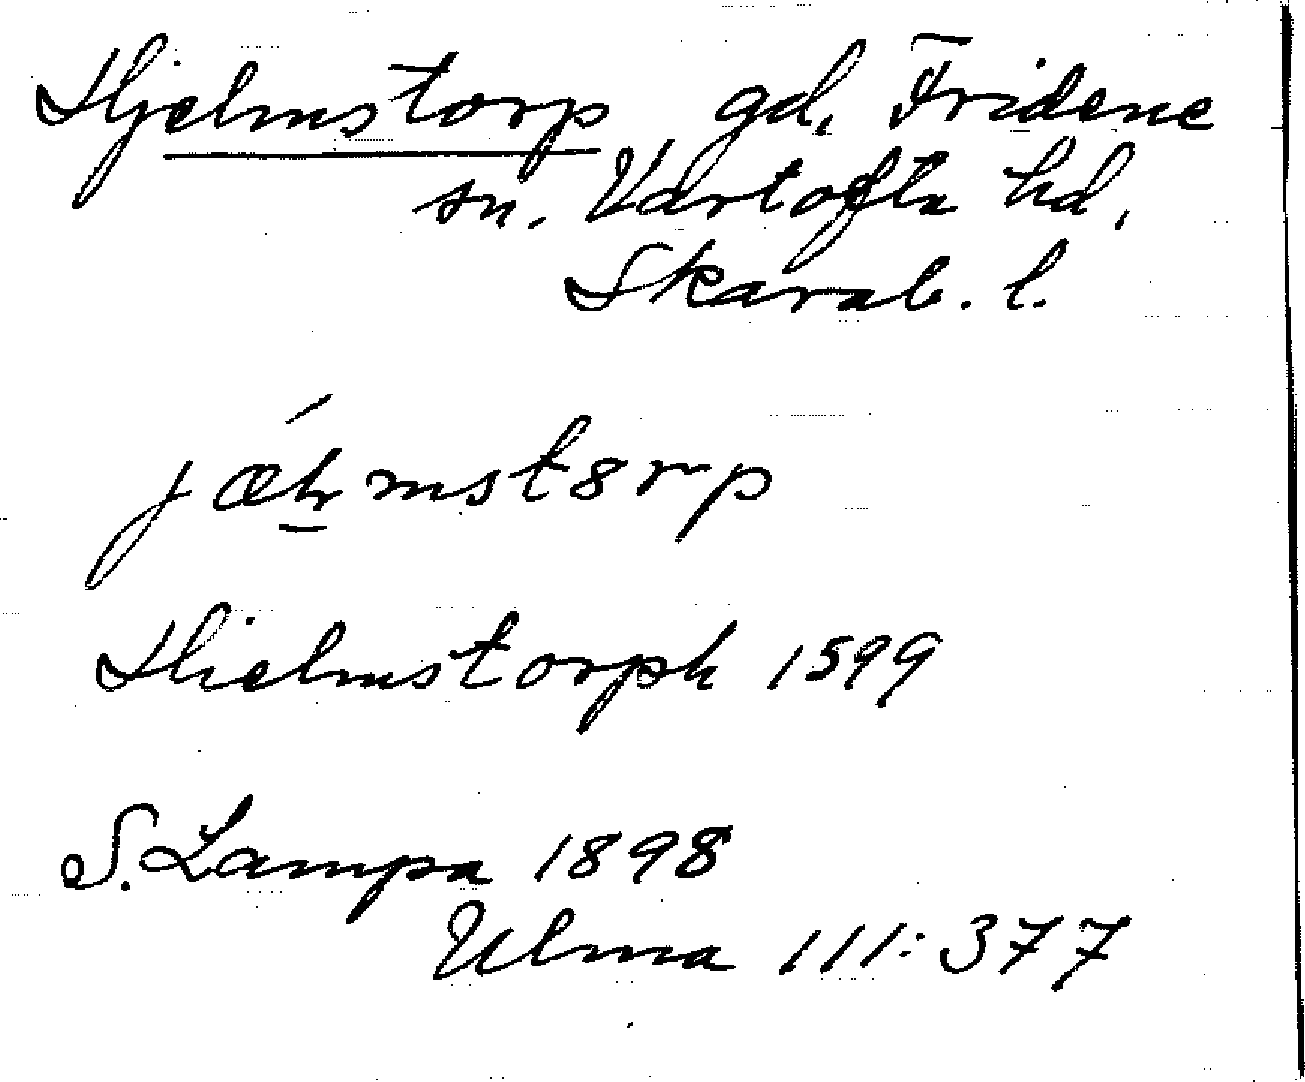 Hjelmstorp gd, Fridene
sn. Vartofta hd,
Skarab. l.
Hielmstorph 1599
S. Lampa 1898
Ulma 111:377